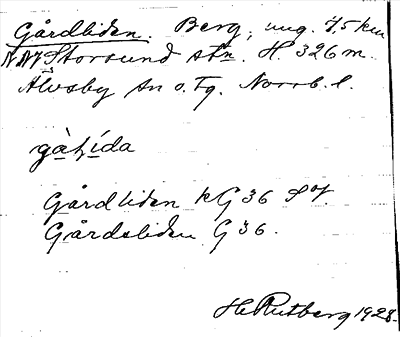 Gårdliden. Berg, ung. 7,5 km
NNV Storsund stn. H. 326 m.
Älvsby sn o. tg. Norrb. l.
Gårdliden kG 36 SV.
Gårdsliden G 36.
H. Rutberg 1928.